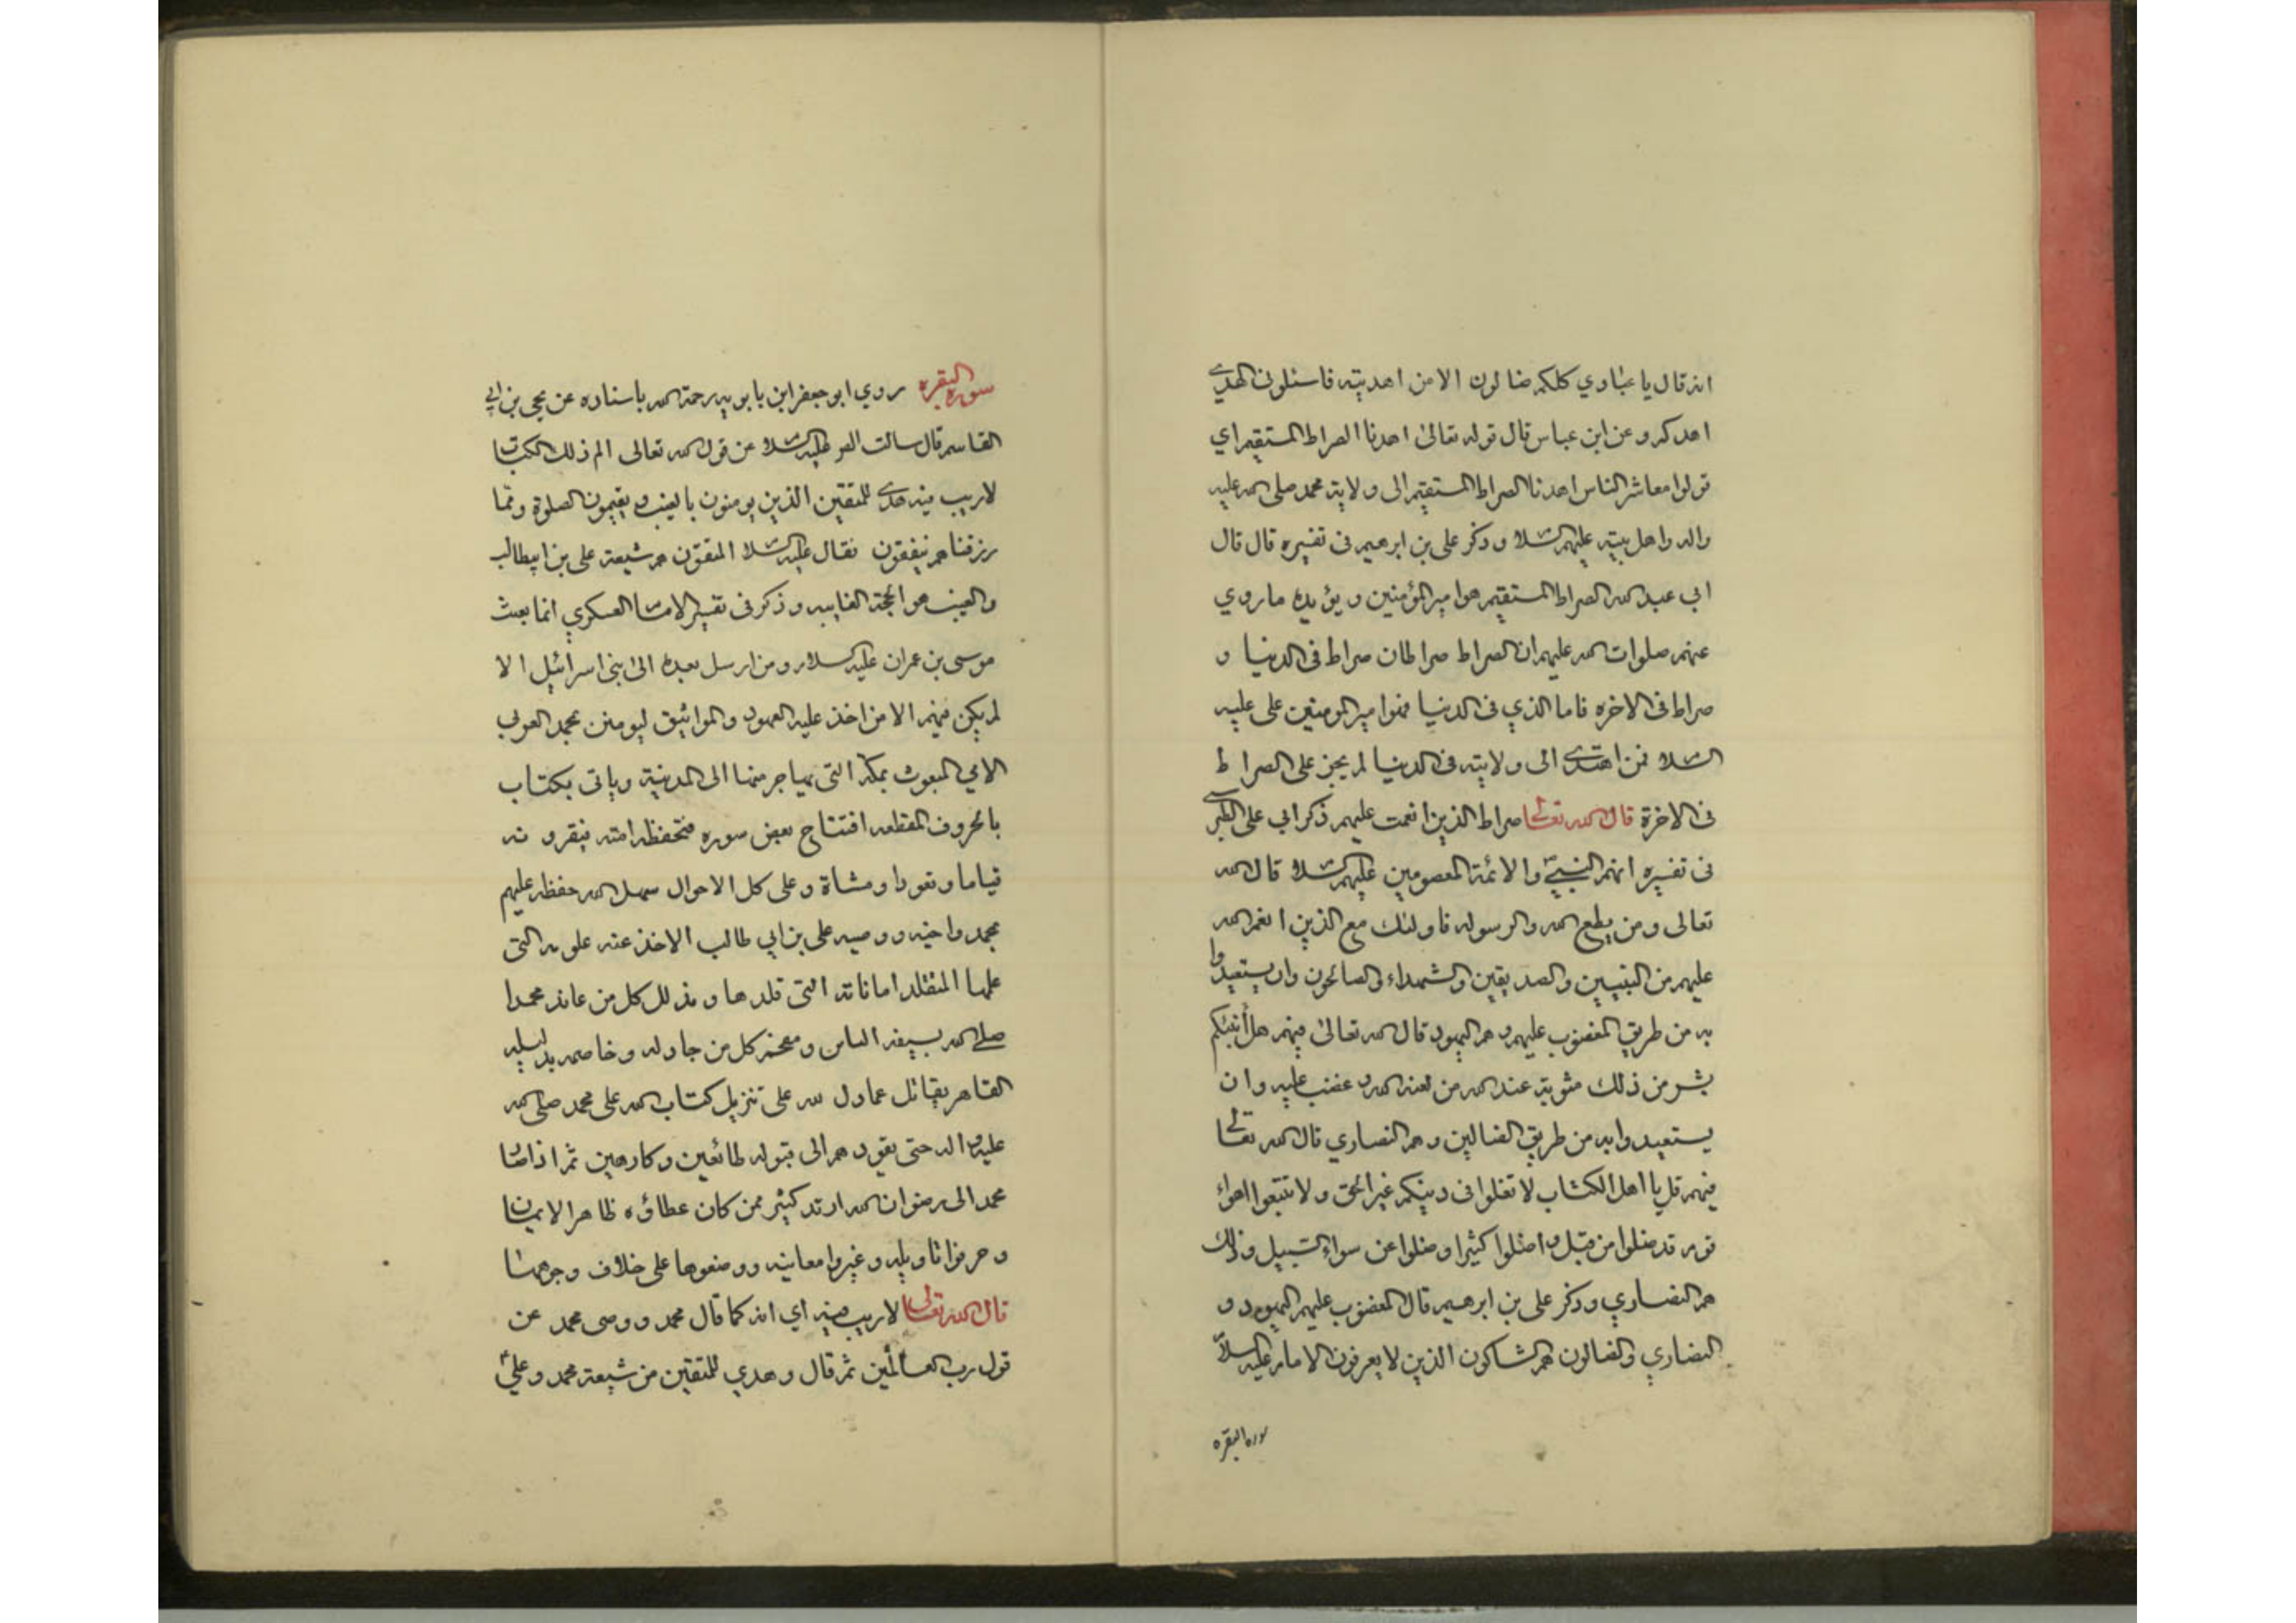 انه قال يا عبادي كلكم ضالون الا من اهديته فاسئلوني الهدي
اهدكم وعن ابن عباس قال قوله تعالى اهدنا الصراط المستقيم اي
قولوا معاشر الناس اهدنا الصراط المستقيم الى ولاية محمد صلى الله عليه
واله واهل بيته عليهم السلام وذكر على بن ابرهيم فى تفسيره قال قال
ابي عبد الله الصراط المستقيم هو امير المؤمنين و يؤيده ما روي
عنهم صلوات الله عليهم ان الصراط صراطان صراط فى الدنيا و
صراط فى الاخره فاما الذي فى الدنيا فهو امير المومنين على عليه
السلام فمن اهتدي الى ولايته فى الدنيا لم يجز على الصراط
فى الاخرة قال الله تعالى صراط الذين انعمت عليهم ذكر ابي على الطبرسي
فى تفسيره انهم النبي والائمة المعصومين عليهم السلام قال الله
تعالى ومن يطع الله والرسوله فاولئك مع الذين انعم الله
عليهم من النبيين والصديقين والشهداء والصالحون وان يستعيدوا
به من طريق المغضوب عليهم وهم اليهود قال الله تعالى فيهم هل أنبئكم
بشر من ذلك مثوبة عند الله من لعنه الله وغضب عليه وان
يستعيدوا به من طريق الضالين وهم النصاري قال الله تعالى
فيهم قل يا اهل الكتاب لا تغلوا فى دينكم غير الحق ولا تتبعوا اهواء
قوم قد ضلوا من قبل واضلوا كثيرا وضلوا عن سواء السبيل وذلك
هم النصاري وذكر على بن ابرهيم قال المغضوب عليهم اليهود و
النصاري والضالون هم الشاكون الذين لا يعرفون الامام عليه السلام
سورة البقره
سورة البقره روي ابو جعفر ابن بابويه رحمة الله باسناده عن يحيى بن ابي
القاسم قال سالت الصادق عليه السلام عن قول الله تعالى الم ذلك الكتاب
لا ريب فيه هدي للمتقين الذين يومنون بالغيب ويقيمون الصلوة ومما
رزقناهم ينفقون فقال عليه السلام المتقون هم شيعة على بن ابيطالب
والغيب هو الحجة الغايب وذكر فى تفسير الامام العسكري انما بعث
موسى بن عمران عليه السلام ومن ارسل بعده الى بنى اسرائيل الا
لم يكن فيهم الا من اخذ عليه العهود والمواثيق ليومنن بمحمد العربي
الامي المبعوث بمكة التى يهاجر منها الى المدينة وياتى بكتاب
بالحروف المقطعه افتتاح بعض سوره فتحفظه امته فيقرونه
قياما وقعودا ومشاة وعلى كل الاحوال سهل الله حفظه عليهم
بمحمد واخيه ووصيه على بن ابي طالب الاخذ عنه علومه التى
علمها المتقلد اماناته التى قلدها ومذلل كل من عاند محمدا
صلى الله بسيفه الباس ومعجز كل من جادله وخاصمه بدليله
القاهر يقاتل عباد الله على تنزيل كتاب الله على محمد صلى الله
عليه واله حتى يقودهم الى قبوله طائعين وكارهين ثم اذا صار
محمد الى رضوان الله ارتد كثير ممن كان عطاؤه ظاهر الايمان
وحرفوا تاويله وغيروا معانيه ووضعوها على خلاف وجوهها
قال الله تعالى لا ريب فيه اي انه كما قال محمد ووصى محمد عن
قول رب العالمين ثم قال وهدي للمتقين من شيعة محمد وعلي